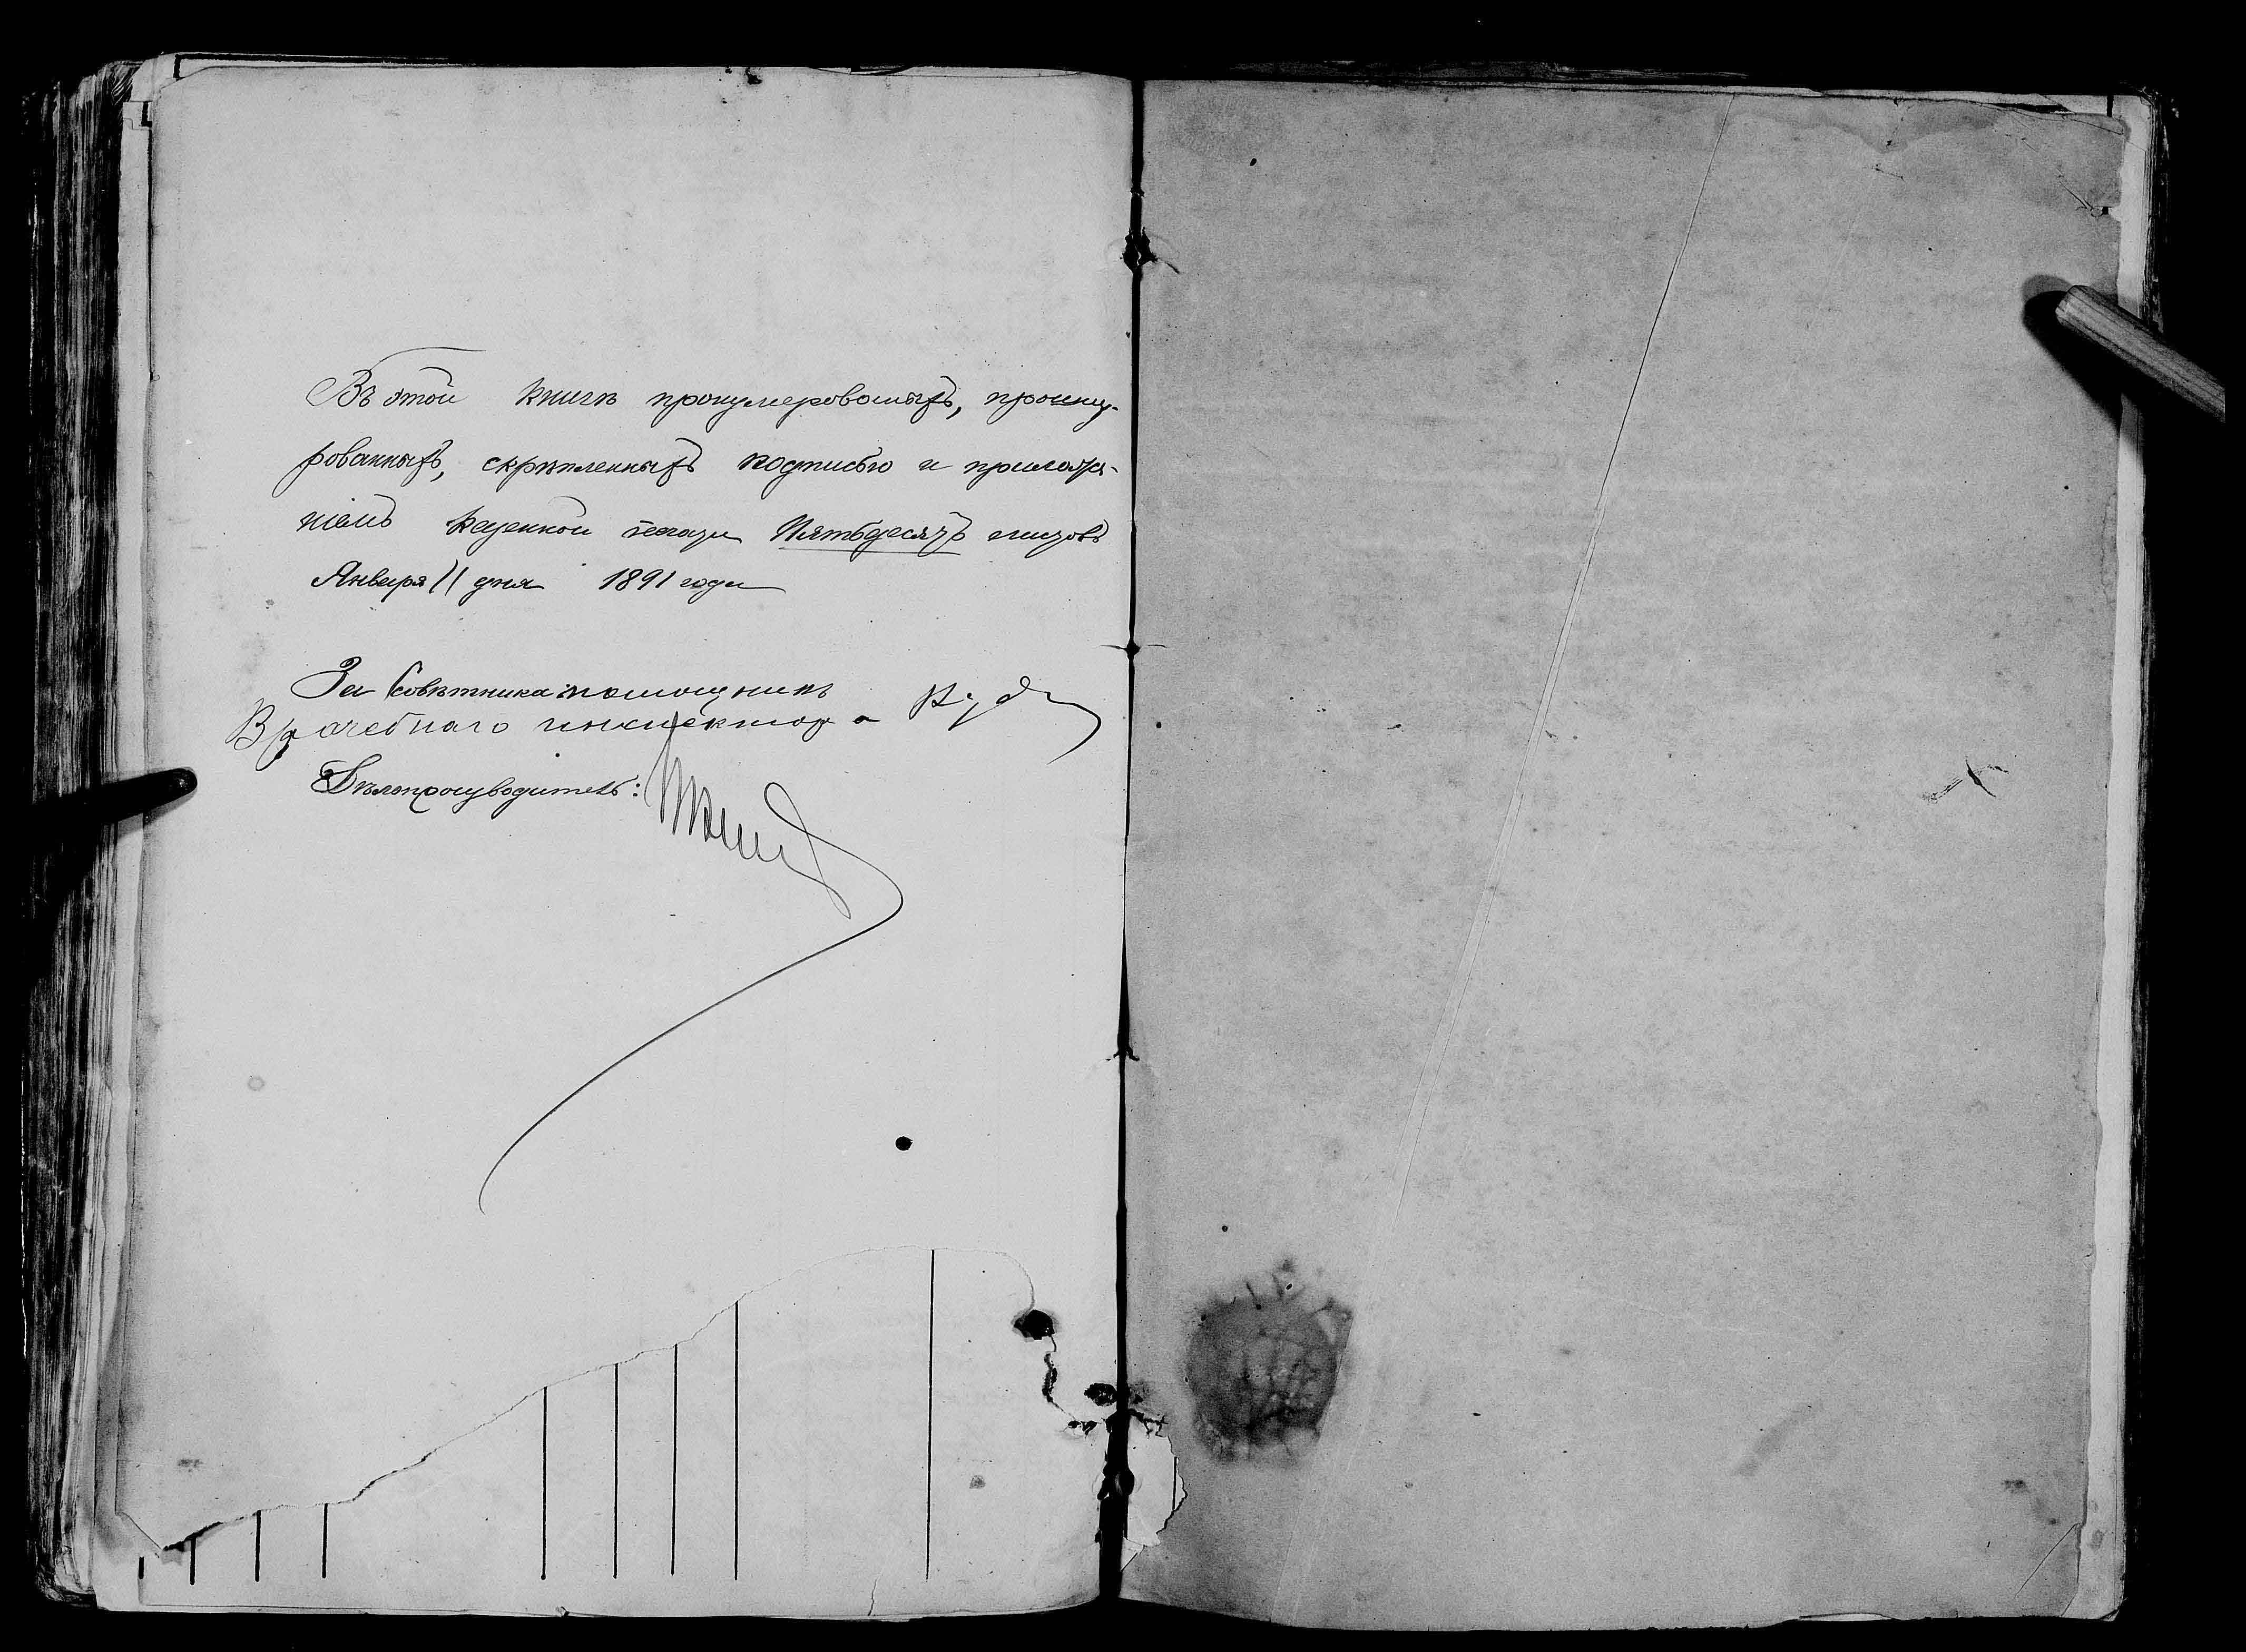 Въ этой книгѣ пронумерованыхъ, прошну-
рованныхъ, скрѣпленныхъ подписью и приложе-
ніемъ казенной печати Пятьдесятъ листовъ
Января 11 дня 1891 года
За Совѣтника помощникъ
Врачебнаго инспектора
Дѣлопроизводитель: